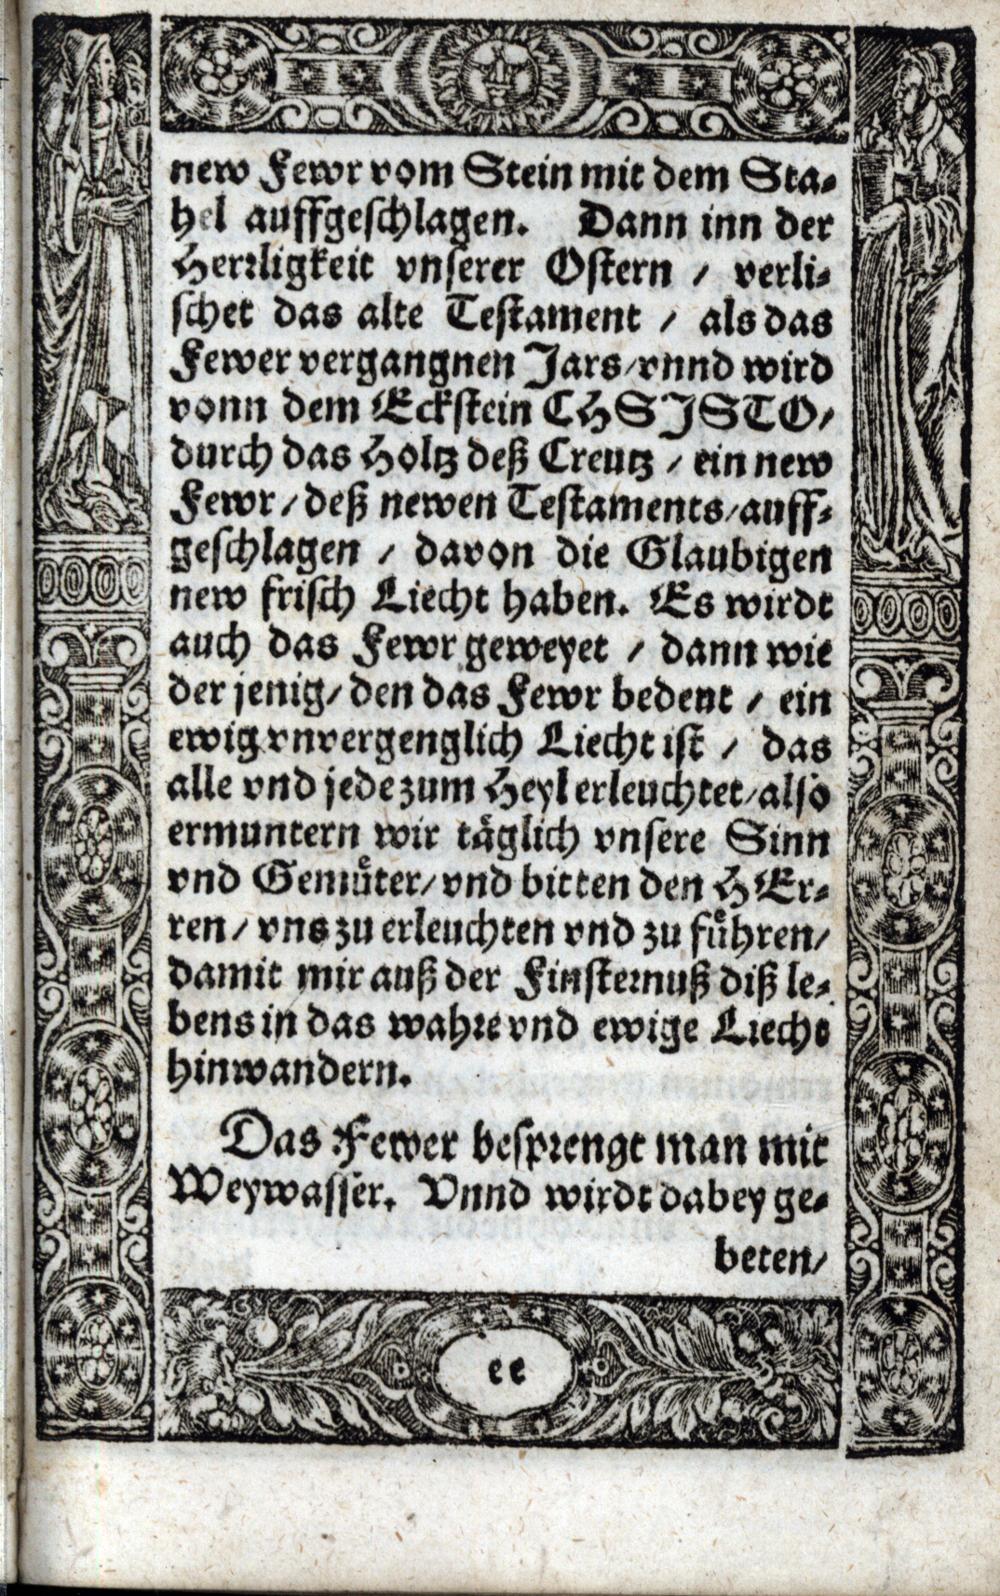 new Fewr vom Stein mit dem Sta-
hel auffgeschlagen. Dann inn der
Herrligkeit vnserer Ostern / verli-
schet das alte Testament / als das
Fewer vergangnen Jars / vnnd wird
vonn dem Eckstein CHSISTO /
durch das Holtz deß Creutz / ein new
Fewr / deß newen Testaments / auff-
geschlagen / davon die Glaubigen
new frisch Liecht haben. Es wirdt
auch das Fewr geweyet / dann wie
der jenig / den das Fewr bedeut / ein
ewig vnvergenglich Liecht ist / das
alle vnd jede zum Heyl erleuchtet / also
ermuntern wir täglich vnsere Sinn
vnd Gemüter / vnd bitten den HEr-
ren / vns zu erleuchten vnd zu führen /
damit mir auß der Finsternuß diß le-
bens in das wahre vnd ewige Liecht
hinwandern.
Das Fewer besprengt man mit
Weywasser. Vnnd wirdt dabey ge-
beten /
ee